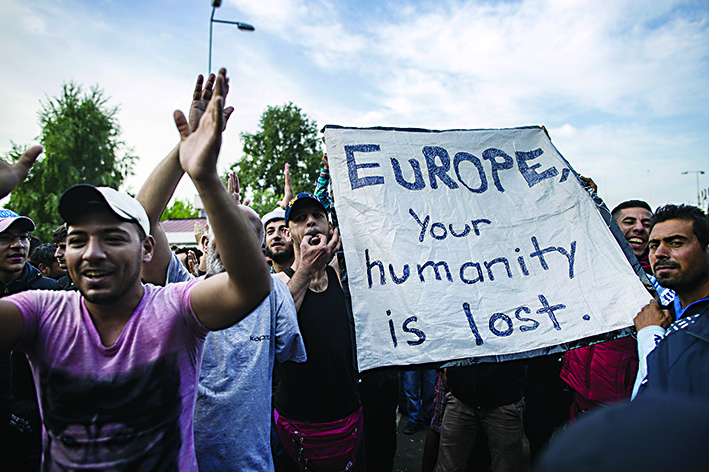 EUROPE,
Your
humanity
is lost.
Kappa